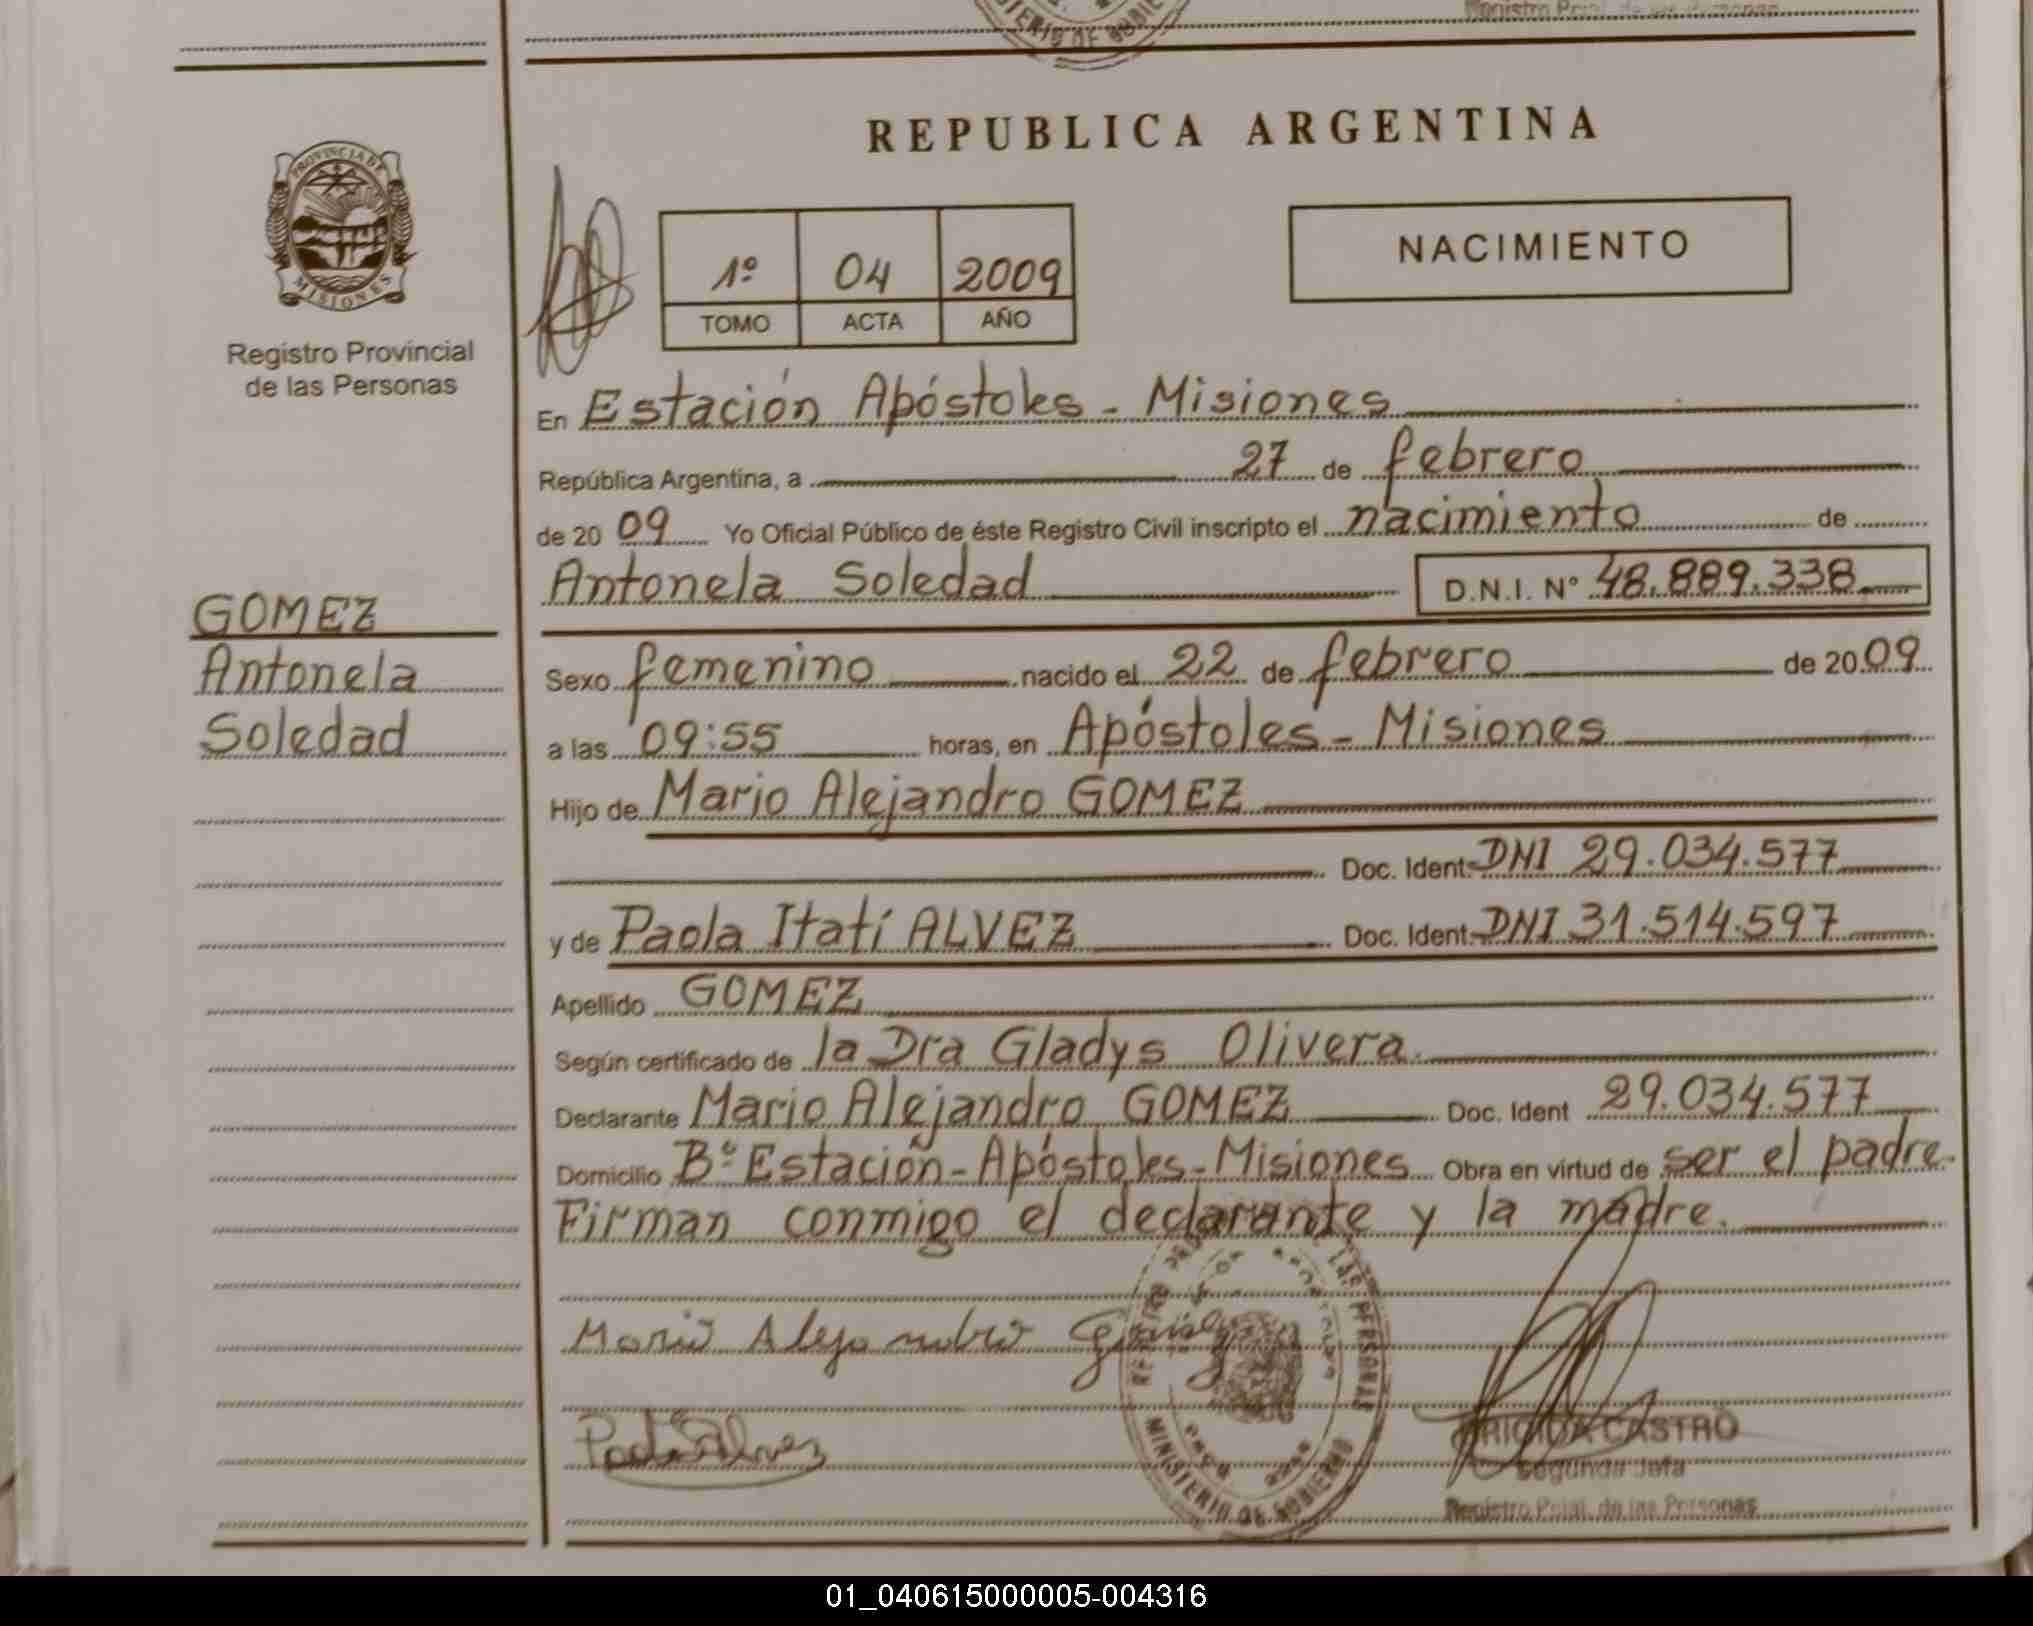 MINISTERIO DE GOBIERNO
Registro Pcial. de las Personas
REPUBLICA ARGENTINA
PROVINCIA DE
MISIONES
Registro Provincial
de las Personas
1º 04 2009
TOMO ACTA AÑO
NACIMIENTO
En Estación Apóstoles - Misiones
República Argentina, a 27 de febrero
de 20 09 Yo Oficial Público de éste Registro Civil inscripto el nacimiento de
Antonela Soledad D.N.I. Nº 48.889.338
GOMEZ
Antonela
Soledad
Sexo femenino nacido el 22 de febrero de 20 09
a las 09:55 horas, en Apóstoles - Misiones
Hijo de Mario Alejandro GOMEZ
Doc. Ident. DNI 29.034.577
y de Paola Itatí ALVEZ Doc. Ident. DNI 31.514.597
Apellido GOMEZ
Según certificado de la Dra Gladys Olivera
Declarante Mario Alejandro GOMEZ Doc. Ident 29.034.577
Domicilio Bº Estación - Apóstoles - Misiones Obra en virtud de ser el padre.
Firman conmigo el declarante y la madre.
Mario Alejandro Gomez
Paola Alvez
REGISTRO DE LAS PERSONAS
MINISTERIO DE GOBIERNO
BRIGIDA CASTRO
Segunda Jefa
Registro Pcial. de las Personas
01_040615000005-004316